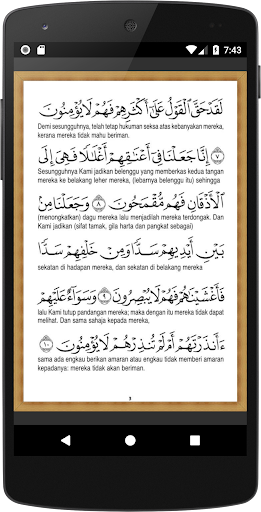 7:43
لَقَدْ حَقَّ ٱلْقَوْلُ عَلَىٰٓ أَكْثَرِهِمْ فَهُمْ لَا يُؤْمِنُونَ
Demi sesungguhnya, telah tetap hukuman seksa atas kebanyakan mereka,
kerana mereka tidak mahu beriman.
٧ إِنَّا جَعَلْنَا فِىٓ أَعْنَٰقِهِمْ أَغْلَٰلًا فَهِىَ إِلَى
Sesungguhnya Kami jadikan belenggu yang memberkas kedua tangan
mereka ke belakang leher mereka, (lebarnya belenggu itu) sehingga
ٱلْأَذْقَانِ فَهُم مُّقْمَحُونَ ٨ وَجَعَلْنَا مِنۢ
(menongkatkan) dagu mereka lalu menjadilah mereka terdongak. Dan
Kami jadikan (sifat tamak, gila harta dan pangkat sebagai)
بَيْنِ أَيْدِيهِمْ سَدًّا وَمِنْ خَلْفِهِمْ سَدًّا
sekatan di hadapan mereka, dan sekatan di belakang mereka
فَأَغْشَيْنَٰهُمْ فَهُمْ لَا يُبْصِرُونَ ٩ وَسَوَآءٌ عَلَيْهِمْ
lalu Kami tutup pandangan mereka; maka dengan itu mereka tidak dapat
melihat. Dan sama sahaja kepada mereka,
ءَأَنذَرْتَهُمْ أَمْ لَمْ تُنذِرْهُمْ لَا يُؤْمِنُونَ ١٠
sama ada engkau berikan amaran atau engkau tidak memberi amaran
kepadanya: mereka tidak akan beriman.